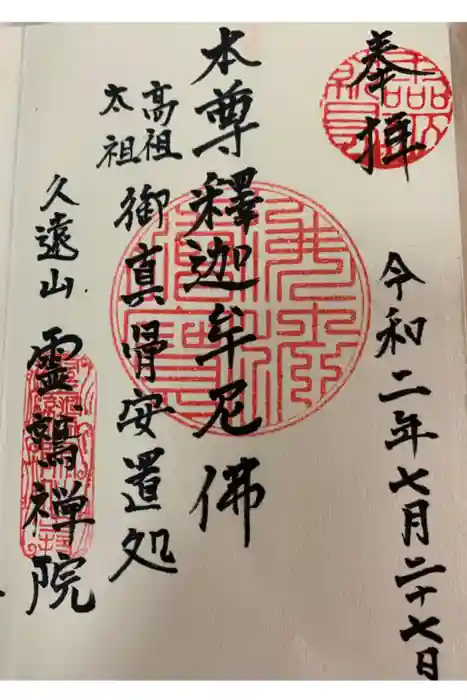 奉拝
令和二年七月二十七日
本尊釋迦牟尼佛
高祖
太祖
御真骨安置処
久遠山
靈鷲禅院